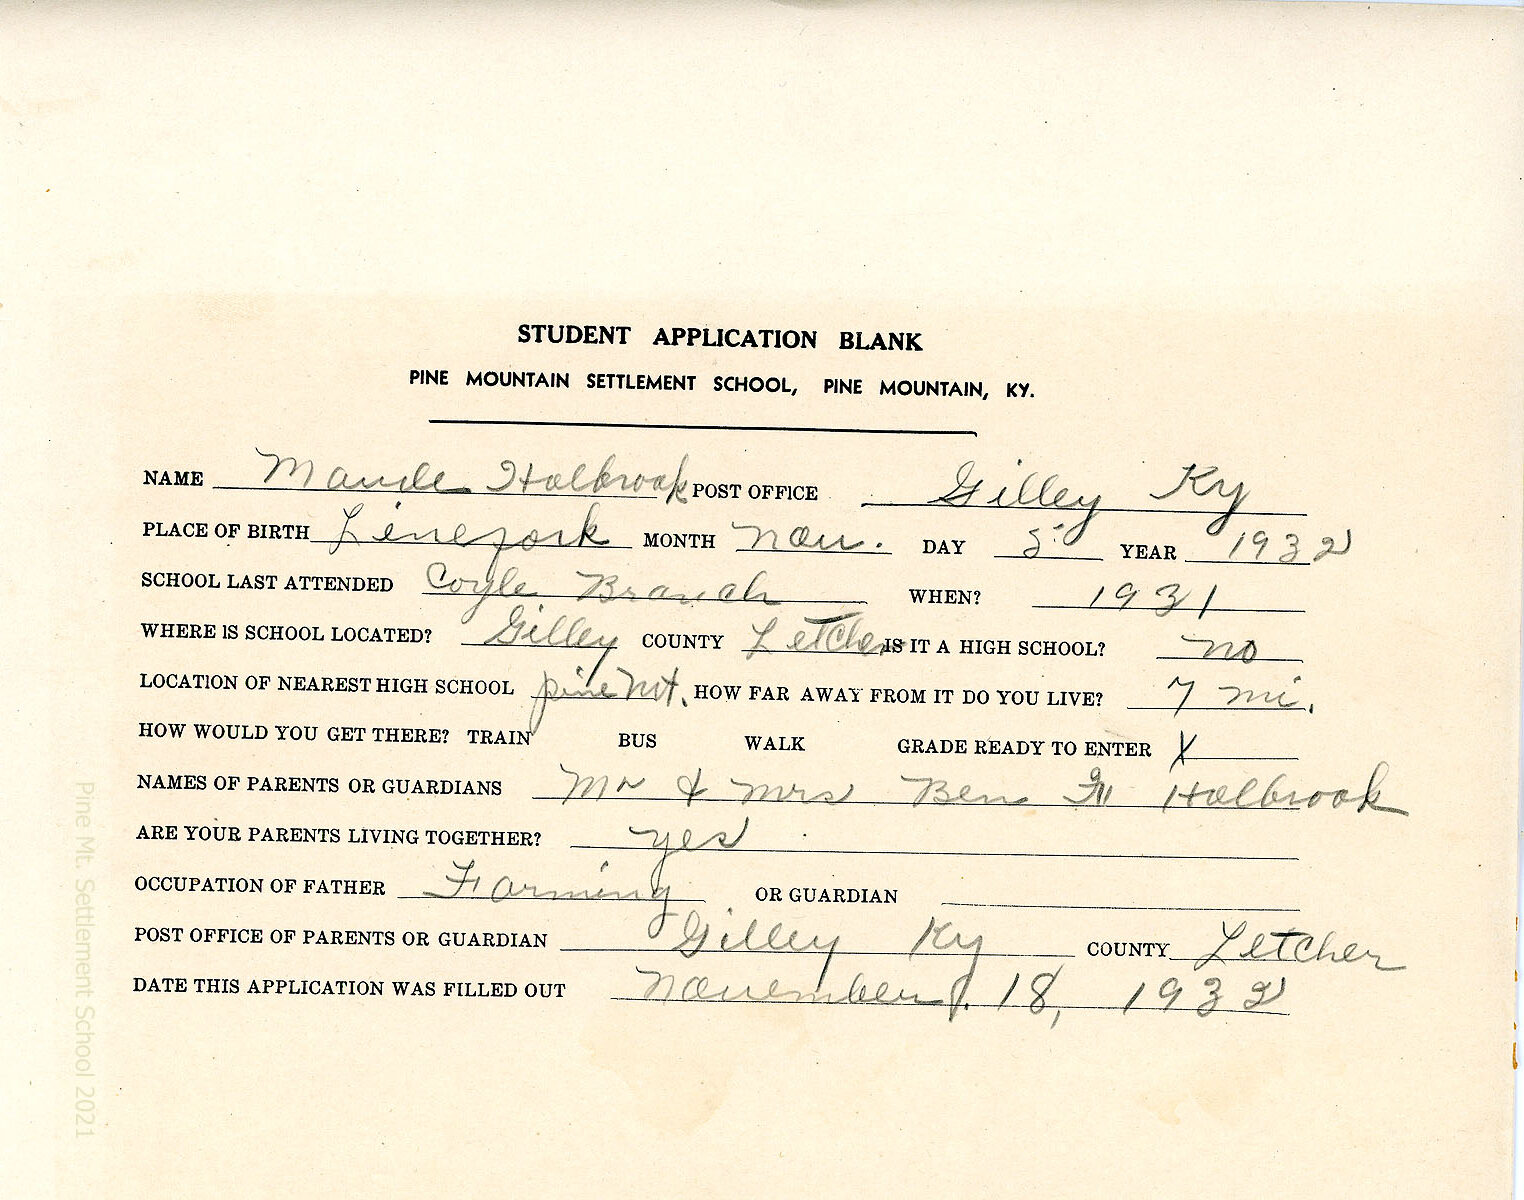 STUDENT APPLICATION BLANK
PINE MOUNTAIN SETTLEMENT SCHOOL, PINE MOUNTAIN, KY.
NAME Maude Holbrook POST OFFICE Gilley Ky
PLACE OF BIRTH Linefork MONTH Nov. DAY 5 YEAR 1932
SCHOOL LAST ATTENDED Coyle Branch WHEN? 1931
WHERE IS SCHOOL LOCATED? Gilley COUNTY Letcher IS IT A HIGH SCHOOL? no
LOCATION OF NEAREST HIGH SCHOOL pine Mt. HOW FAR AWAY FROM IT DO YOU LIVE? 7 mi.
HOW WOULD YOU GET THERE? TRAIN BUS WALK GRADE READY TO ENTER X
NAMES OF PARENTS OR GUARDIANS Mr & Mrs Ben Holbrook
ARE YOUR PARENTS LIVING TOGETHER? yes
OCCUPATION OF FATHER Farming OR GUARDIAN
POST OFFICE OF PARENTS OR GUARDIAN Gilley Ky COUNTY Letcher
DATE THIS APPLICATION WAS FILLED OUT November 18, 1932
Pine Mt. Settlement School 2021